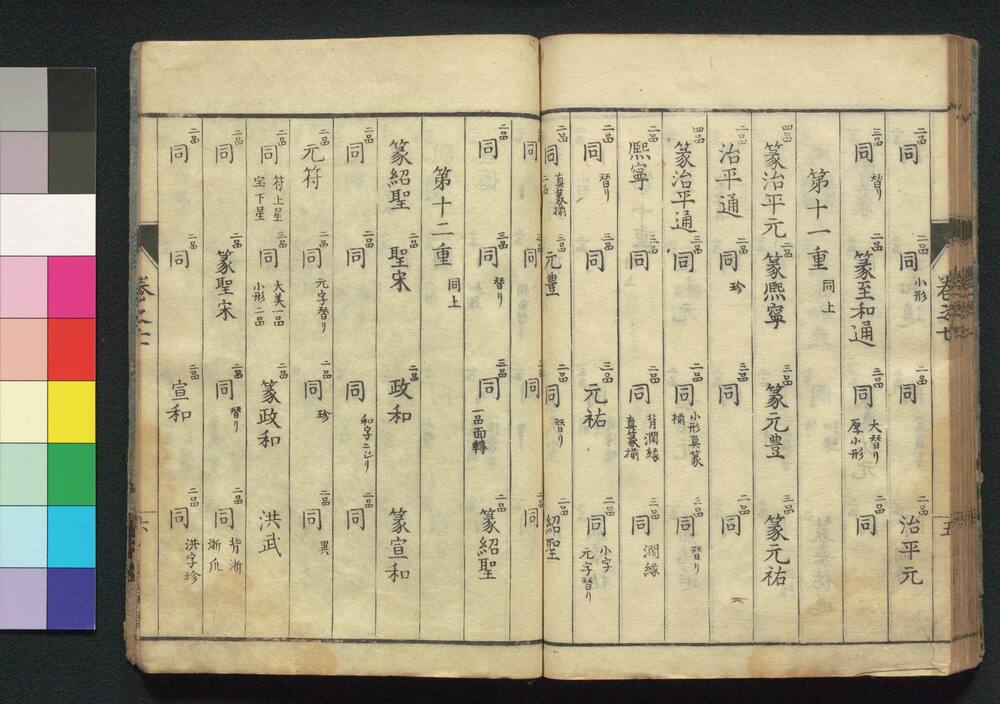 二品 同 二品 同 小形 二品 同 二品 治平元
三品 同 替り 二品 篆至和通 三品 同 大替り 厚小形 二品 同
第十一重 同上
四品 篆治平元 二品 篆熙寧 三品 篆元豊 三品 篆元祐
二品 治平通 二品 同 珍 三品 同 同
四品 篆治平通 三品 同 二品 同 小形真篆 楠 三品 同 替り
二品 熙寧 三品 同 二品 同 背潤縁 真篆揃 三品 同 潤縁
二品 同 替り 三品 同 二品 元祐 二品 同 小字 元字替り
二品 同 真篆揃 三品 元豊 二品 同 替り 二品 紹聖
同 同 同 同
二品 同 三品 同 替り 三品 同 一品面轉 二品 篆紹聖
第十二重 同上
篆紹聖 聖宋 二品 政和 篆宣和
二品 同 二品 同 同 二品 同
二品 元符 二品 同 元字替り 二品 同 珍 二品 同 異
二品 同 符上星 宝下星 三品 同 大美一品 小形二品 二品 篆政和 洪武
二品 同 二品 篆聖宋 二品 同 替り 二品 同 背浙 浙爪
二品 同 二品 同 二品 宣和 二品 同 洪字珍
卷之七
五
六